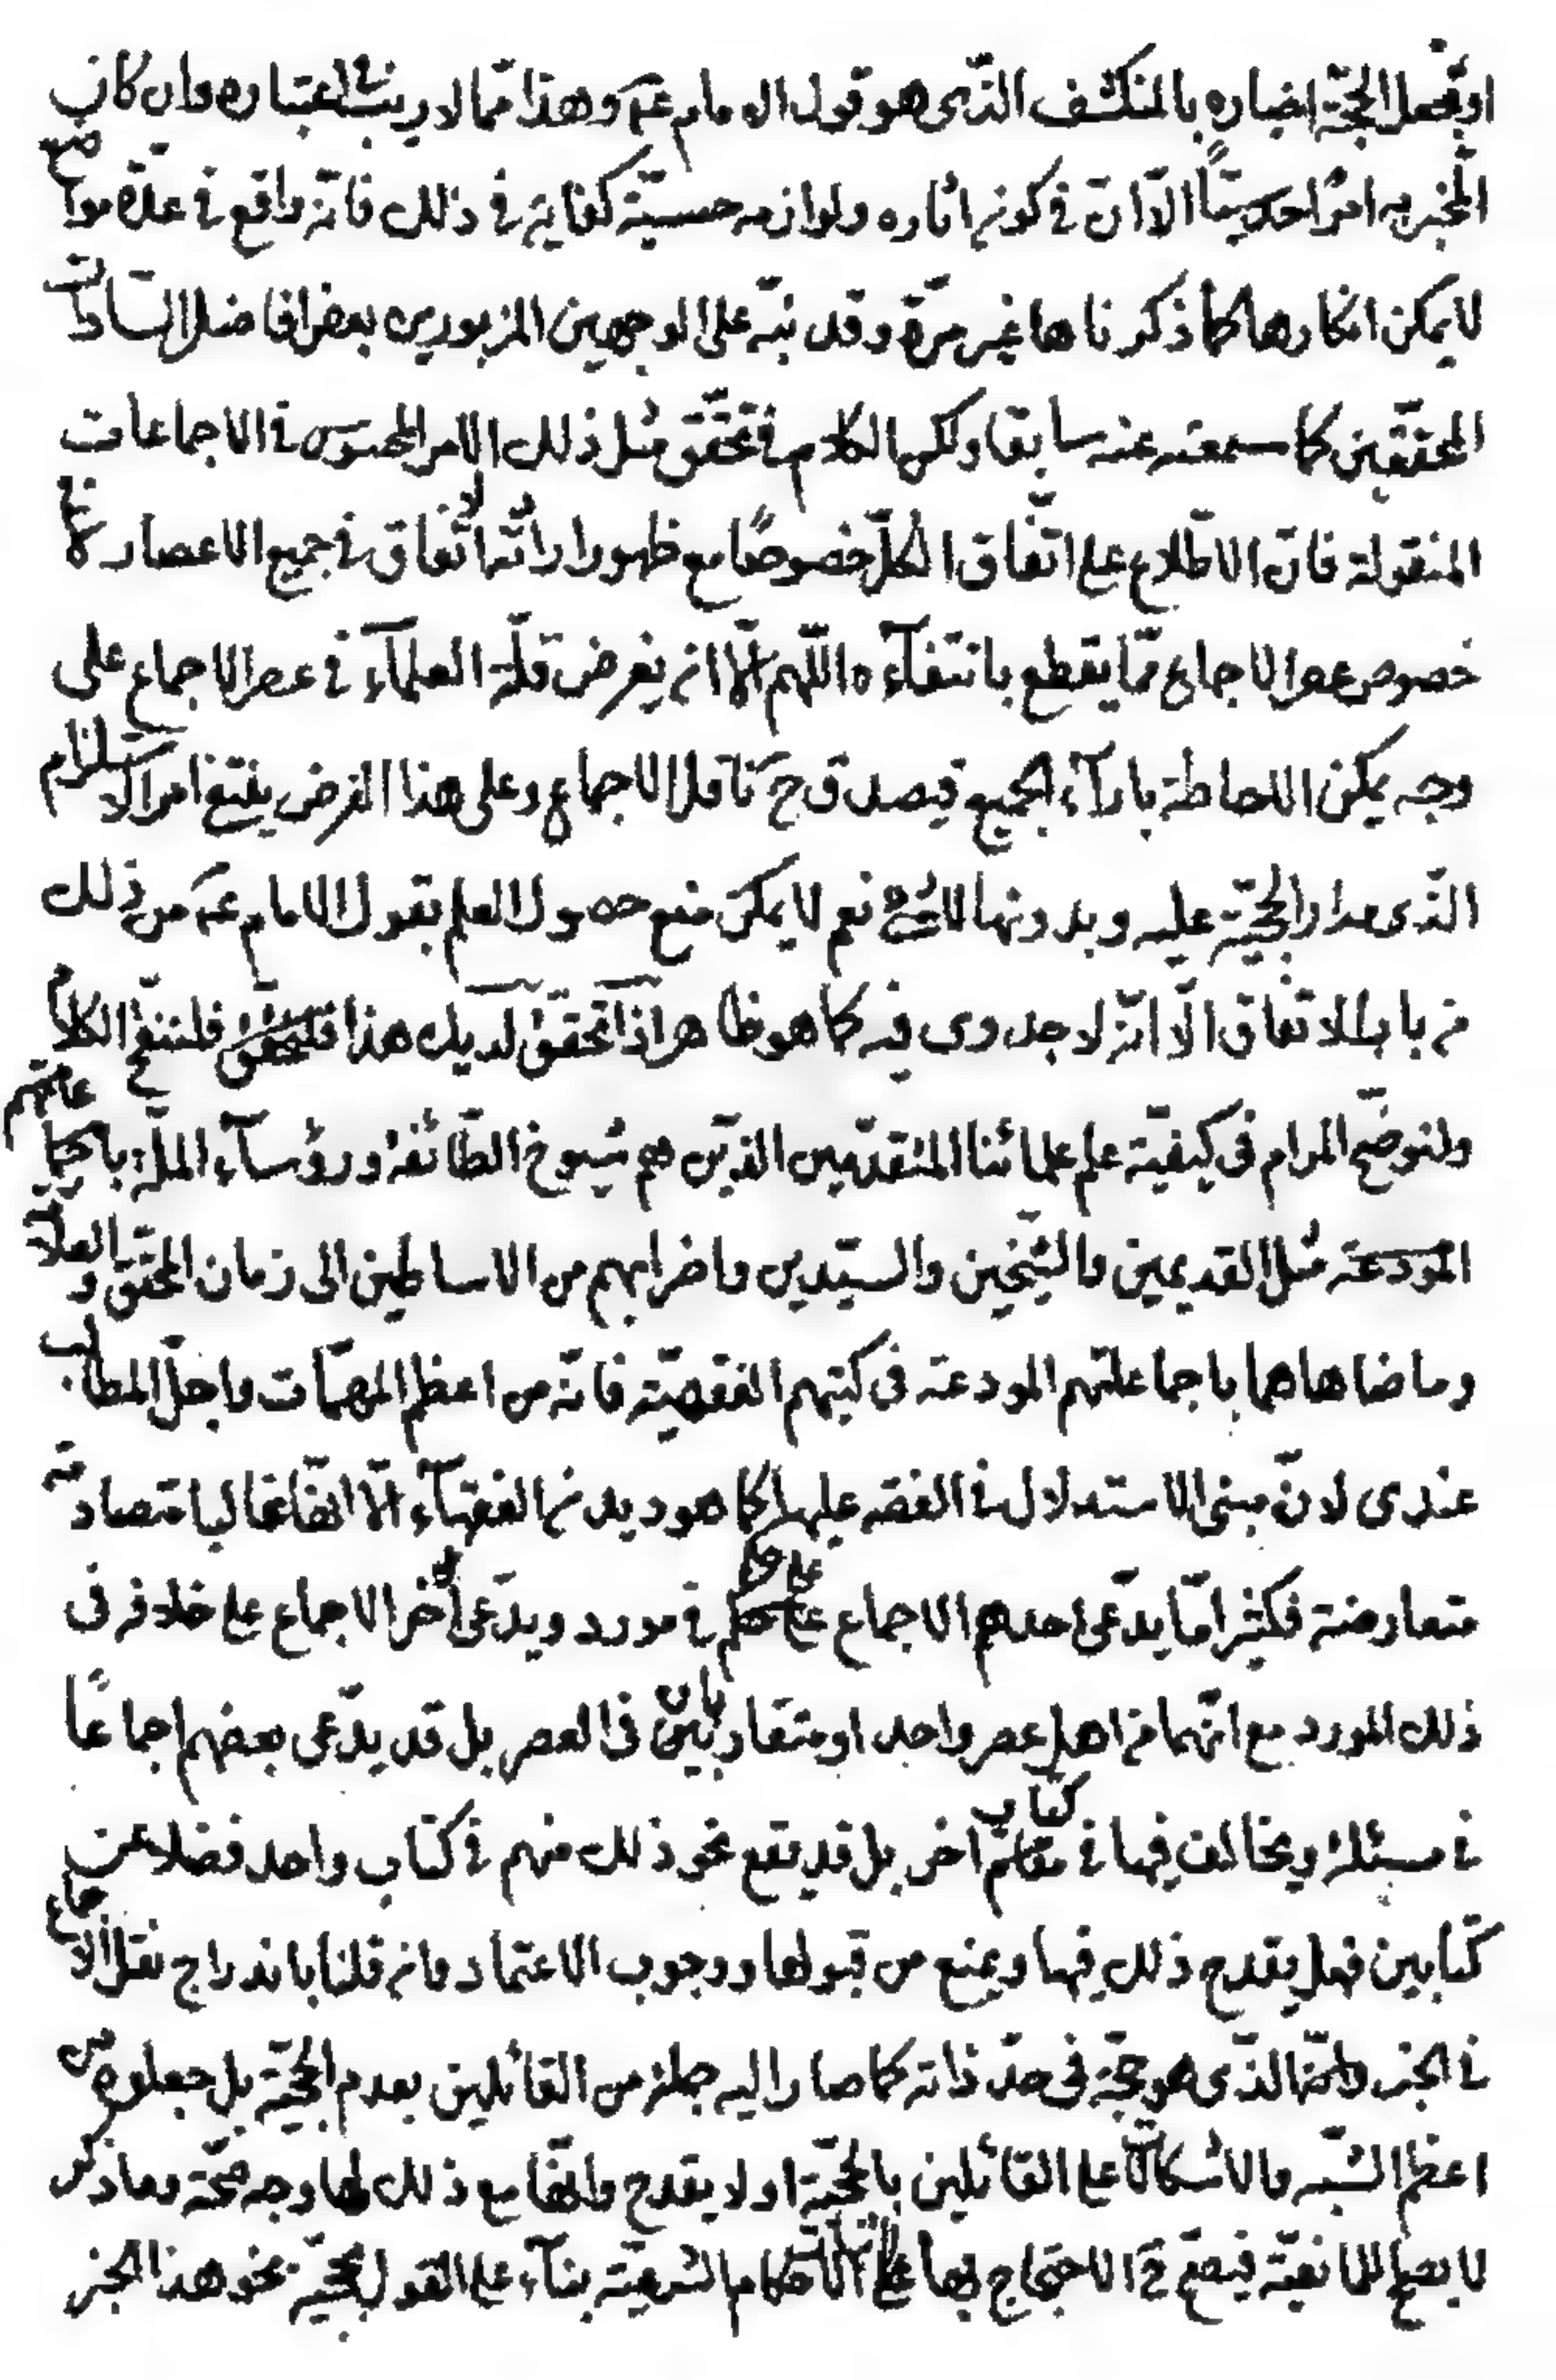 او يجعل الحجّة اخباره بالمنكشف الذّى هو قول الامام عه وهذا ممّا لا ريب فى اعتباره وان كان
المخبر به امرًا حدسيًّا الّا انّ فى كونه اثاره ولوازمه حسيّة كفاية فى ذلك فانّه واقع فى عدّة مواضع
لا يمكن انكارها كما ذكرناها غير مرّة وقد نبّه على الوجهين المزبورين بعض افاضل السّادات
المحقّقين كما سمعته عنه سابقا ولكن الكلام فى تحقّق مثل ذلك الامر المحسوس فى الاجماعات
المنقولة فانّ الاطّلاع على اتّفاق الكلّ خصوصًا مع ظهور ارادته لاتّفاق فى جميع الاعصار لا فى
خصوص عصر الاجماع ممّا يقطع بانتفآءه اللّهم الّا ان يفرض قلّة العلمآء فى عصر الاجماع على
وجه يمكن الاحاطة بارآء الجميع فيصدق ح ناقل الاجماع وعلى هذا الفرض ينتفى امر الاستلزام
الذّى مدار الحجيّة عليه وبدونها لا شئ نعم لا يمكن منع حصول العلم بقول الامام عه من ذلك
من باب الاتفاق الّا انّه لا جدوى فيه كما هو ظاهر اذا تحقّق لديك هذا فلننقّح الكلام
ولنوضّح المرام فى كيفيّة علم علمائنا المتقدّمين الذّين هم شيوخ الطّائفة ورؤسآء الملّة باجماعاتهم
المودعة مثل القديمين والشّيخين والسيّدين واضرابهم من الاساطين الى زمان المحقّق والعلّامة
وما ضاهاهما باجماعاتهم المودعة فى كتبهم الفقهيّة فانّه من اعظم المهمّات واجلّ المطالب
عندى لانّ مبنى الاستدلال فى الفقه عليها كما هو ديدن الفقهآء الّا انّها غالبا متصادمة
متعارضة فكثيرا مّا يدّعى احدهم الاجماع على حكم فى مورد ويدّعى الاخر الاجماع على خلافه فى
ذلك المورد مع انّهما من اهل عصر واحد او متقاربان فى العصر بل قد يدّعى بعضهم اجماعًا
فى مسئلة ويخالف فيها فى كتاب اخر بل قد يقع نحو ذلك منهم فى كتاب واحد فضلا عن
كتابين فهل يقدح ذلك فيها ويمنع من قبولها ووجوب الاعتماد وان قلنا باندراج نقل الاجماع
فى الخبر وانّها الذّى هو حجّة فى حدّ ذاته كما صار اليه جملة من القائلين بعدم الحجيّة بل جعلوه من
اعظم الشّبه والاشكالات على القائلين بالحجيّة او لا يقدح وانّها مع ذلك لها وجه صحّة وما ذكر
لا يصلح للمانعيّة فيصحّ ح الاحتجاج بها على الاحكام الشرعيّة بنآء على القول بحجيّة نحو هذا الخبر